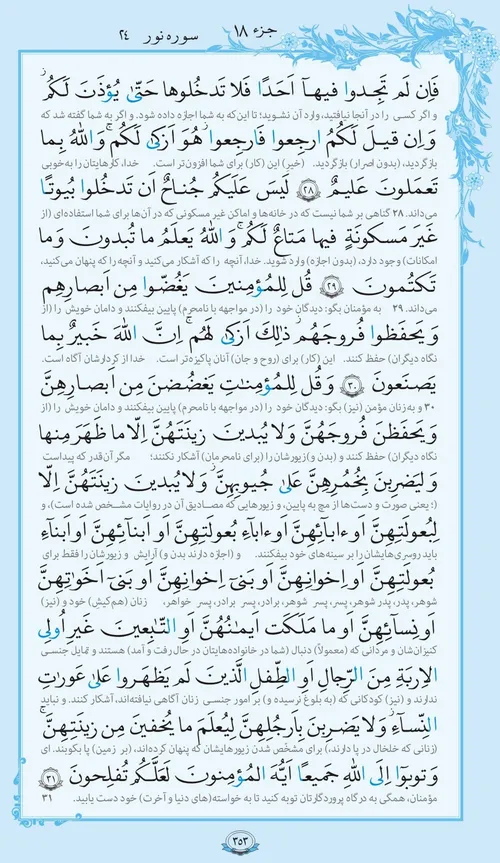 جزء ۱۸
سوره نور ۲۴
فَاِن لَم تَجِدوا فیهآ اَحَدًا فَلا تَدخُلوها حَتّیٰ یُؤذَنَ لَکُم
و اگر کسی را در آنجا نیافتید، وارد آن نشوید؛ تا این‌که به شما اجازه داده شود. و اگر به شما گفته شد که
وَ اِن قیلَ لَکُمُ ارجِعوا فَارجِعوا هُوَ اَزکیٰ لَکُم وَ اللهُ بِما
بازگردید، (بدون اصرار) بازگردید. (خیر) این (کار) برای شما افزون‌تر است. خدا، کارهایتان را به‌خوبی
تَعمَلونَ عَلیمٌ ۲۸ لَیسَ عَلَیکُم جُناحٌ اَن تَدخُلوا بُیوتًا
می‌داند. ۲۸ گناهی بر شما نیست که در خانه‌ها و اماکن غیر مسکونی که در آن‌ها برای شما استفاده‌ای (از
غَیرَ مَسکونَةٍ فیها مَتاعٌ لَکُم وَ اللهُ یَعلَمُ ما تُبدونَ وَ ما
امکانات) وجود دارد، (بدون اجازه) وارد شوید. خدا، آنچه را که آشکار می‌کنید و آنچه را که پنهان می‌کنید،
تَکتُمونَ ۲۹ قُل لِلمُؤمِنینَ یَغُضّوا مِن اَبصارِهِم
می‌داند. ۲۹ به مؤمنان بگو: دیدگان خود را (در مواجهه با نامحرم) پایین بیفکنند و دامان خویش را (از
وَ یَحفَظوا فُروجَهُم ذٰلِكَ اَزکیٰ لَهُم اِنَّ اللهَ خَبیرٌ بِما
نگاه دیگران) حفظ کنند. این (کار) برای (روح و جان) آنان پاکیزه‌تر است. خدا از کردارشان آگاه است.
یَصنَعونَ ۳۰ وَ قُل لِلمُؤمِناتِ یَغضُضنَ مِن اَبصارِهِنَّ
۳۰ و به زنان مؤمن (نیز) بگو: دیدگان خود را (در مواجهه با نامحرم) پایین بیفکنند و دامان خویش را (از
وَ یَحفَظنَ فُروجَهُنَّ وَلا یُبدینَ زینَتَهُنَّ اِلّا ما ظَهَرَ مِنها
نگاه دیگران) حفظ کنند و (بدن و) زیورشان را (برای نامحرمان) آشکار نکنند؛ مگر آن‌قدر که پیداست
وَ لیَضرِبنَ بِخُمُرِهِنَّ عَلیٰ جُیوبِهِنَّ وَلا یُبدینَ زینَتَهُنَّ اِلّا
(؛ یعنی صورت و دست‌ها از مچ به پایین، و زیورهایی که مصادیق آن در روایات مشخص شده است)، و
لِبُعولَتِهِنَّ اَو ءابآئِهِنَّ اَو ءابآءِ بُعولَتِهِنَّ اَو اَبنآئِهِنَّ اَو اَبنآءِ
باید روسری‌هایشان را بر سینه‌های خود بیفکنند. و (اجازه دارند بدن و) آرایش و زیورشان را فقط برای
بُعولَتِهِنَّ اَو اِخوانِهِنَّ اَو بَنیٓ اِخوانِهِنَّ اَو بَنیٓ اَخَواتِهِنَّ
شوهر، پدر، پدر شوهر، پسر، پسر شوهر، برادر، پسر برادر، پسر خواهر، زنان (هم‌کیش) خود و (نیز)
اَو نِسآئِهِنَّ اَو ما مَلَکَت اَیمانُهُنَّ اَوِ التّابِعینَ غَیرِ اُولِی
کنیزانشان و مردانی که (معمولاً) دنبال (شما در خانواده‌هایتان در حال رفت و آمد) هستند و تمایل جنسی
الاِربَةِ مِنَ الرِّجالِ اَوِ الطِّفلِ الَّذینَ لَم یَظهَروا عَلیٰ عَوراتِ
ندارند و (نیز) کودکانی که (به بلوغ نرسیده و) بر امور جنسی زنان آگاهی نیافته‌اند، آشکار کنند. و نباید
النِّسآءِ وَلا یَضرِبنَ بِاَرجُلِهِنَّ لِیُعلَمَ ما یُخفینَ مِن زینَتِهِنَّ
(زنانی که خلخال در پا دارند،) برای مشخّص شدن زیورهایشان که پنهان کرده‌اند، (بر زمین) پا بکوبند. ای
وَ توبوٓا اِلَی اللهِ جَمیعًا اَیُّهَ المُؤمِنونَ لَعَلَّکُم تُفلِحونَ ۳۱
مؤمنان، همگی به درگاه پروردگارتان توبه کنید تا به خواسته(های دنیا و آخرت) خود دست یابید. ۳۱
۳۵۳